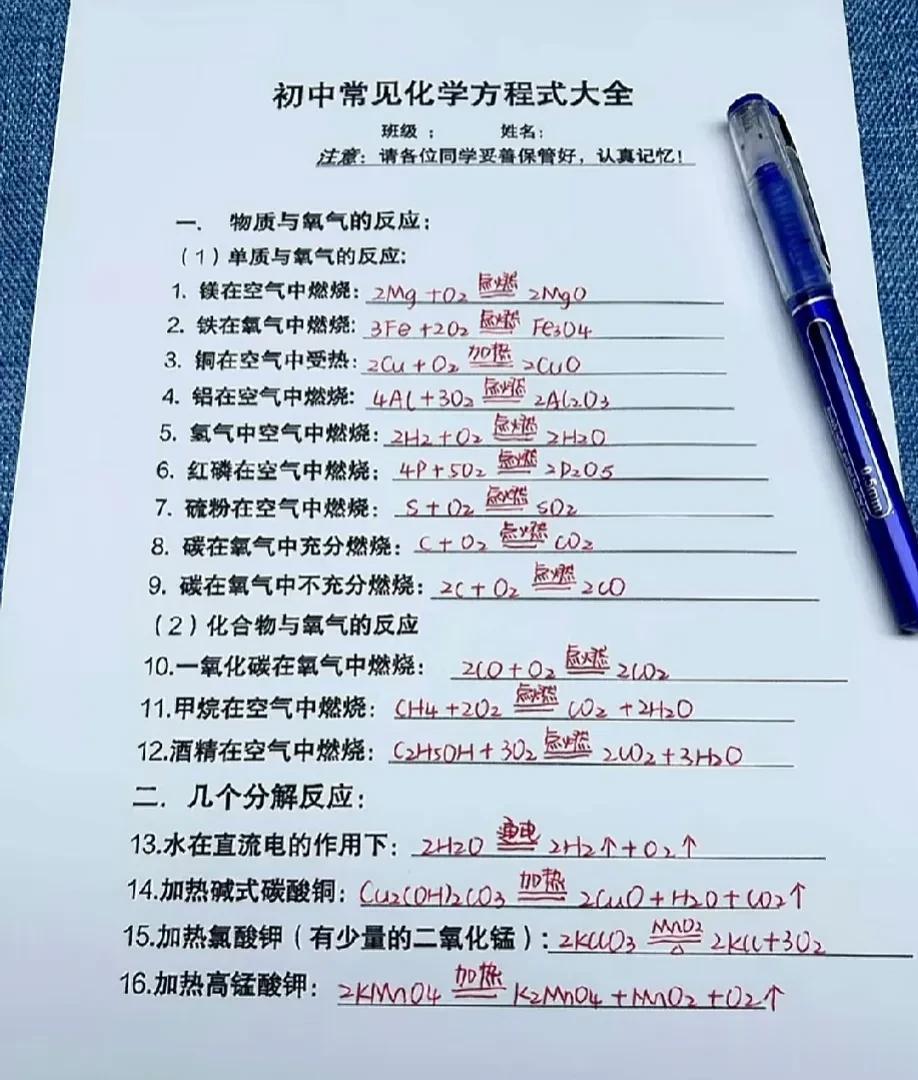 初中常见化学方程式大全
班级 : 姓名:
注意:请各位同学妥善保管好,认真记忆!
一. 物质与氧气的反应:
(1)单质与氧气的反应:
1. 镁在空气中燃烧: 2Mg +O2 点燃 2MgO
2. 铁在氧气中燃烧: 3Fe +2O2 点燃 Fe3O4
3. 铜在空气中受热: 2Cu + O2 加热 2CuO
4. 铝在空气中燃烧: 4Al + 3O2 点燃 2Al2O3
5. 氢气中空气中燃烧: 2H2 + O2 点燃 2H2O
6. 红磷在空气中燃烧: 4P + 5O2 点燃 2P2O5
7. 硫粉在空气中燃烧: S + O2 点燃 SO2
8. 碳在氧气中充分燃烧: C + O2 点燃 CO2
9. 碳在氧气中不充分燃烧: 2C + O2 点燃 2CO
(2)化合物与氧气的反应
10.一氧化碳在氧气中燃烧: 2CO + O2 点燃 2CO2
11.甲烷在空气中燃烧: CH4 + 2O2 点燃 CO2 + 2H2O
12.酒精在空气中燃烧: C2H5OH + 3O2 点燃 2CO2 + 3H2O
二. 几个分解反应:
13.水在直流电的作用下: 2H2O 通电 2H2↑ + O2↑
14.加热碱式碳酸铜: Cu2(OH)2CO3 加热 2CuO + H2O + CO2↑
15.加热氯酸钾(有少量的二氧化锰): 2KClO3 MnO2 △ 2KCl + 3O2
16.加热高锰酸钾: 2KMnO4 加热 K2MnO4 + MnO2 + O2↑
0.5mm